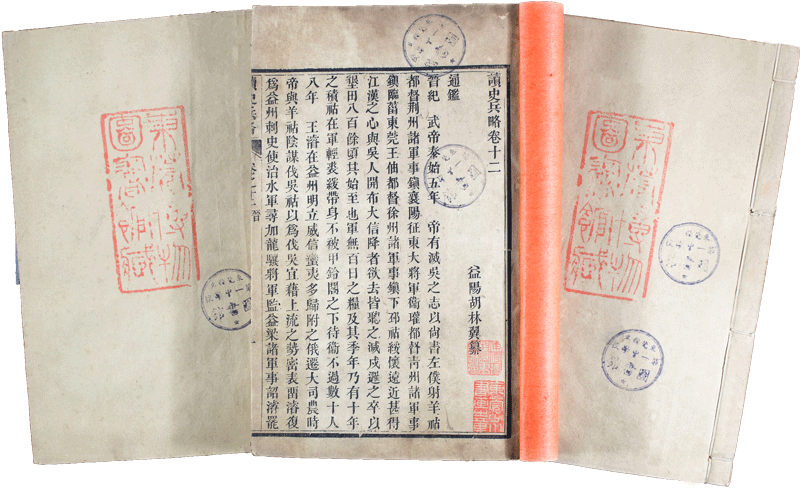 讀史兵略卷十二
益陽胡林翼纂
通鑑
晉紀 武帝泰始五年 帝有滅吳之志以尙書左僕射羊祜
都督荆州諸軍事鎭襄陽征東大將軍衞瓘都督靑州諸軍事
鎭臨菑東莞王伷都督徐州諸軍事鎭下邳祜綏懷遠近甚得
江漢之心與吳人開布大信降者欲去皆聽之減戍邏之卒以
墾田八百餘頃其始至也軍無百日之糧及其季年乃有十年
之積祜在軍輕裘緩帶身不被甲鈴閤之下侍衞不過數十人
八年 王濬在益州明立威信蠻夷多歸附之俄遷大司農時
帝與羊祜陰謀伐吳祜以爲伐吳宜藉上流之勢密表畱濬復
爲益州刺史使治水軍尋加龍驤將軍監益梁諸軍事詔濬罷